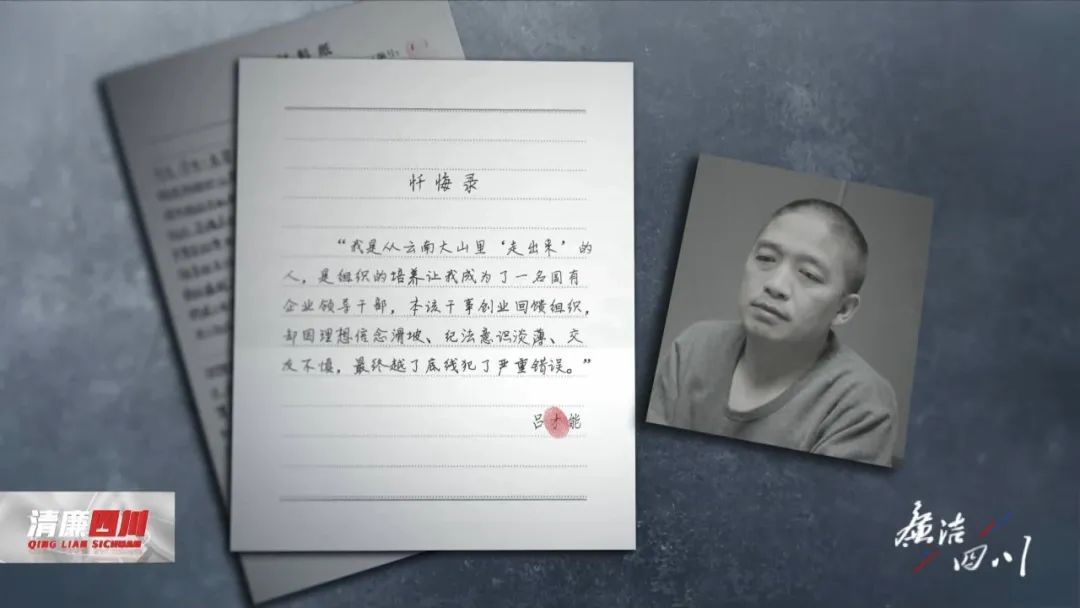 忏悔录
“我是从云南大山里‘走出来’的
人，是组织的培养让我成为了一名国有
企业领导干部，本该干事创业回馈组织，
却因理想信念滑坡、纪法意识淡薄、交
友不慎，最终越了底线犯了严重错误。”
吕才能
清廉四川
QING LIAN SICHUAN
廉洁
四川